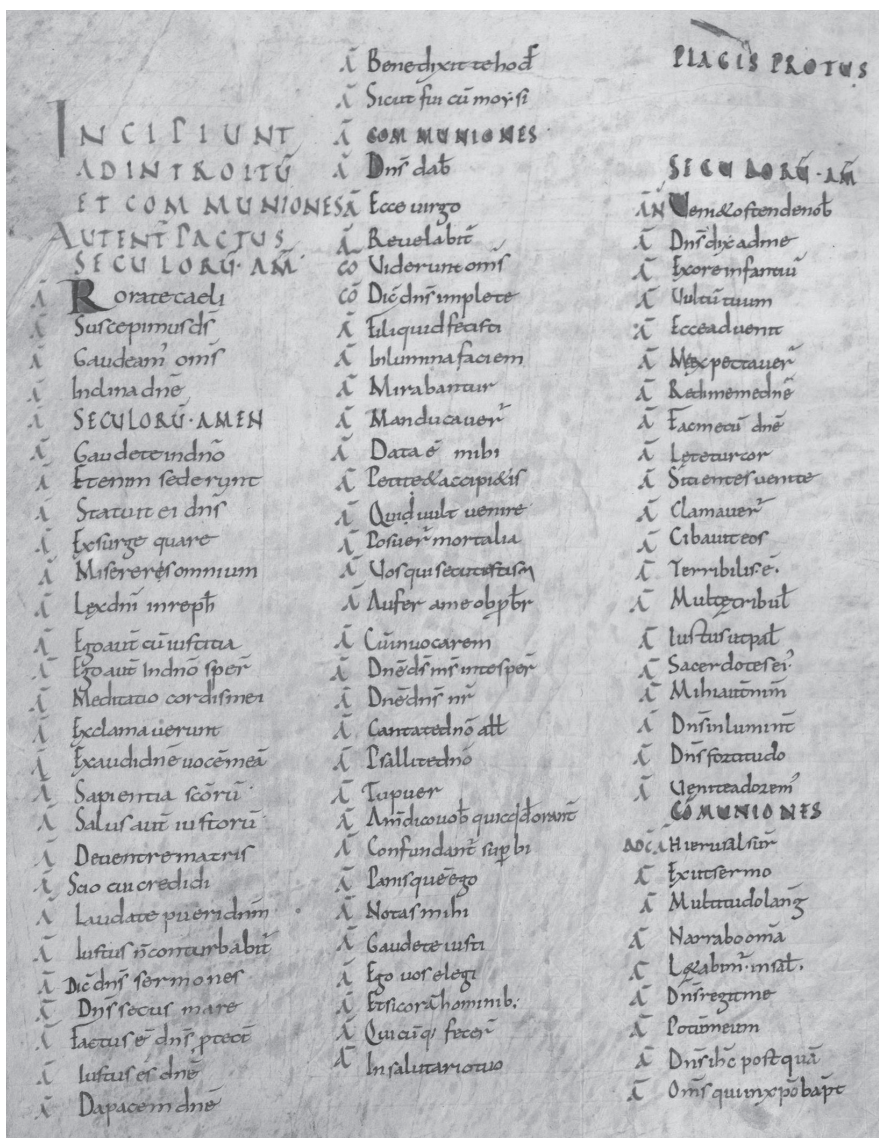 INCIPIUNT
AD INTROITŪ
ET COMMUNIONES
AUTENT̄ PACTUS
SECULORŪ·AM̄
Ā Rorate caeli
Ā Suscepimus ds̄
Ā Gaudeam' oms̄
Ā Inclina dnē
Ā SECULORŪ·AMEN
Ā Gaudete indnō
Ā Etenim sederunt
Ā Statuit ei dns̄
Ā Exsurge quare
Ā Misereres omnium
Ā Lex dnī inreph̄
Ā Ego aut̄ cū iustitia
Ā Ego aut̄ Indnō sper̄
Ā Meditatio cordis mei
Ā Exclamauerunt
Ā Exaudi dnē uocē meā
Ā Sapientia scōrū
Ā Salus aut̄ iustorū
Ā De uentre matris
Ā Scio cui credidi
Ā Laudate pueri dnm̄
Ā Iustus n̄ conturbabit̄
Ā Dic̄ dns̄ sermones
Ā Dns̄ secus mare
Ā Factus ē dns̄ ptect̄
Ā Iustus es dnē
Ā Da pacem dnē
Ā Benedixit te hod̄
Ā Sicut fui cū moysi
Ā COMMUNIONES
Ā Dns̄ dab̄
Ā Ecce uirgo
Ā Revelabit̄
CŌ Viderunt oms̄
CŌ Dic̄ dns̄ implete
Ā Fili quid fecisti
Ā Inlumina faciem
Ā Mirabantur
Ā Manducauer̄
Ā Data ē mihi
Ā Petite & accipi&is
Ā Quid uult uenire
Ā Posuer̄ mortalia
Ā Vos qui secuti estis m̄
Ā Aufer a me obp̄br
Ā Cū inuocarem
Ā Dnē ds̄ ms̄ inte sper̄
Ā Dnē dns̄ nr̄
Ā Cantate dnō all̄
Ā Psallite dnō
Ā Tu puer
Ā Am̄ dico uob̄
Ā Confundant̄ suꝑbi
Ā Panis quē ego
Ā Notas mihi
Ā Gaudete iusti
Ā Ego uos elegi
Ā Etsi corā hominib·
Ā Quicūq; fecer̄
Ā In salutari tuo
PLAGIS PROTUS
SECULORŪ·AM̄
ĀN Veni & ostende nob̄
Ā Dns̄ dix̄ ad me
Ā Ex ore infantiū
Ā Vultū tuum
Ā Ecce aduenit
Ā Me expectauer̄
Ā Redime me dnē
Ā Fac mecū dnē
Ā Letetur cor
Ā Sitientes uenite
Ā Clamauer̄
Ā Cibauit eos
Ā Terribilis ē·
Ā Multe tribul̄
Ā Iustus ut pal̄
Ā Sacerdotes ei·
Ā Mihi aut̄ nim̄
Ā Dns̄ inlumint̄
Ā Dns̄ fortitudo
Ā Uenite adorem'
CŌMUNIONES
Ā Hierusal̄ sur̄
Ā Exiit sermo
Ā Multitudo lanḡ
Ā Narrabo omā
Ā L&abim̄· in sal̄·
Ā Dns̄ regit me
Ā Potū meum
Ā Dns̄ ihc̄ post quā
Ā Oms̄ qui in xpō bapt̄